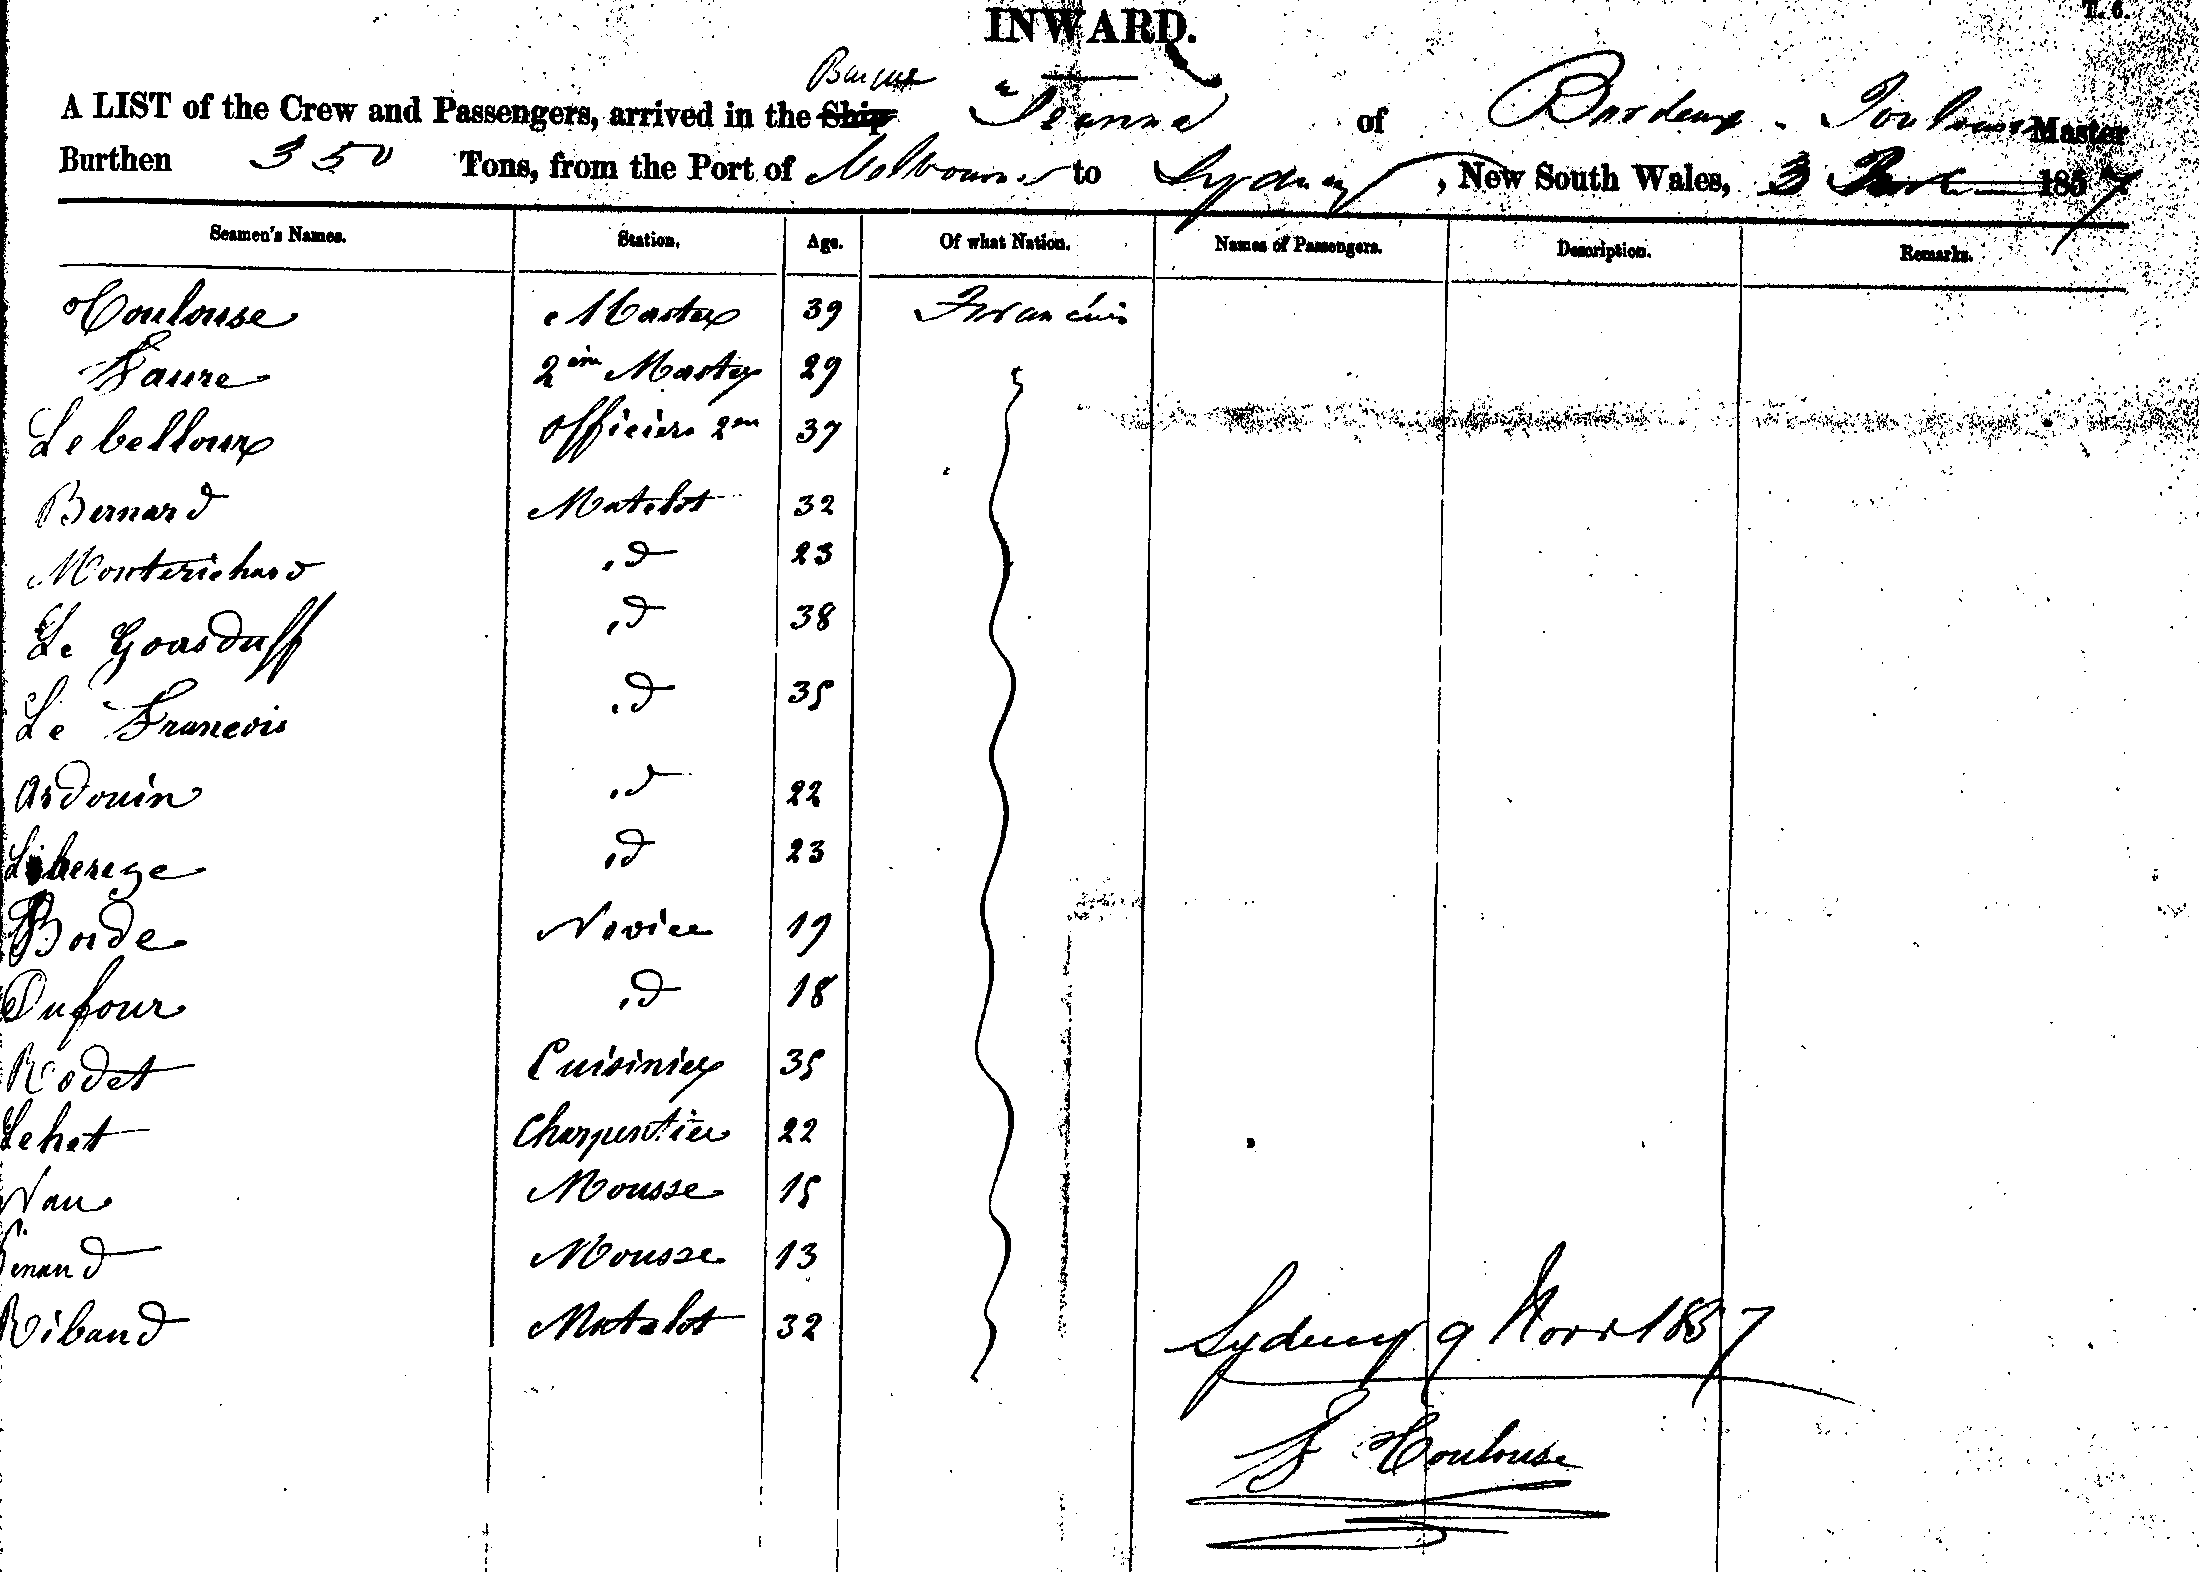 T. 6.
INWARD.
Barque
A LIST of the Crew and Passengers, arrived in the Ship "Jeanne of Bordeaux - Toulouse Master
Burthen 350 Tons, from the Port of Melbourne to Sydney, New South Wales, 3 1857
Seamen's Names. Station. Age. Of what Nation. Names of Passengers. Description. Remarks.
Toulouse Master 39 Francais
Faure 2em Master 29
Lebelloux Officier 2em 37
Bernard Matelot 32
Monterichard id 23
Le Goasduff id 38
Le Francois id 35
Ardouin id 22
id 23
Borde Novice 19
Dufour id 18
Rodet Cuisinier 35
Lehet Charpentier 22
Nau Mousse 15
Mousse 13
Ribaud Matelot 32
Sydney 9 Novr 1857
F Toulouse